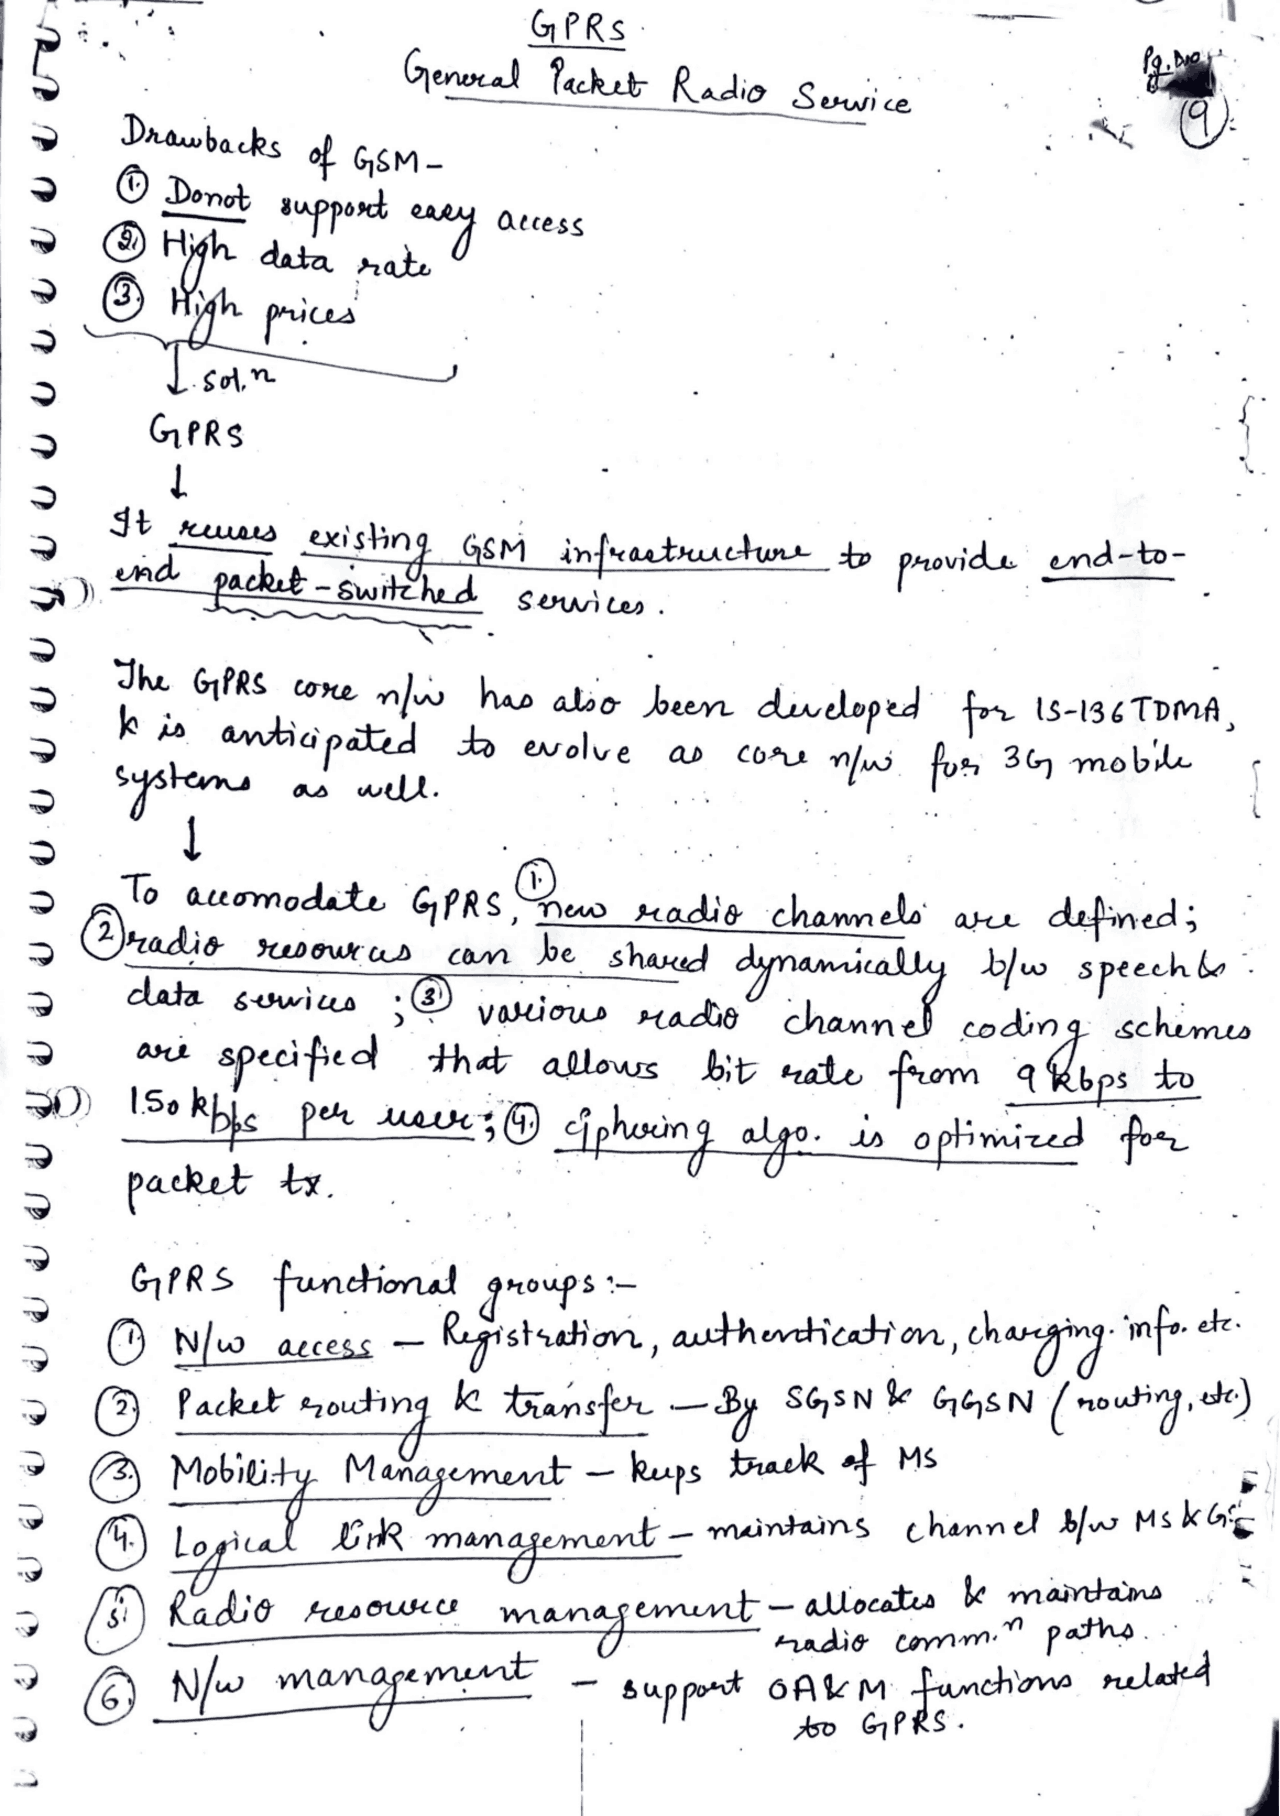 GPRS
General Packet Radio Service
Pg. No
9
Drawbacks of GSM -
1. Donot support easy access
2. High data rate
3. High prices
↓ sol.n
GPRS
↓
It reuses existing GSM infrastructure to provide end-to-
end packet-switched services.
The GPRS core n/w has also been developed for IS-136 TDMA,
& is anticipated to evolve as core n/w for 3G mobile
systems as well.
↓
To accomodate GPRS, 1. new radio channels are defined;
2 radio resources can be shared dynamically b/w speech &
data services ; 3 various radio channel coding schemes
are specified that allows bit rate from 9 kbps to
150 kbps per user; 4. ciphering algo. is optimized for
packet tx.
GPRS functional groups :-
1. N/w access - Registration, authentication, charging. info. etc.
2. Packet routing & transfer - By SGSN & GGSN (routing, etc.)
3. Mobility Management - keeps track of MS
4. Logical link management - maintains channel b/w MS &
5. Radio resource management - allocates & maintains
radio comm.n paths.
6. N/w management - support OA&M functions related
to GPRS.